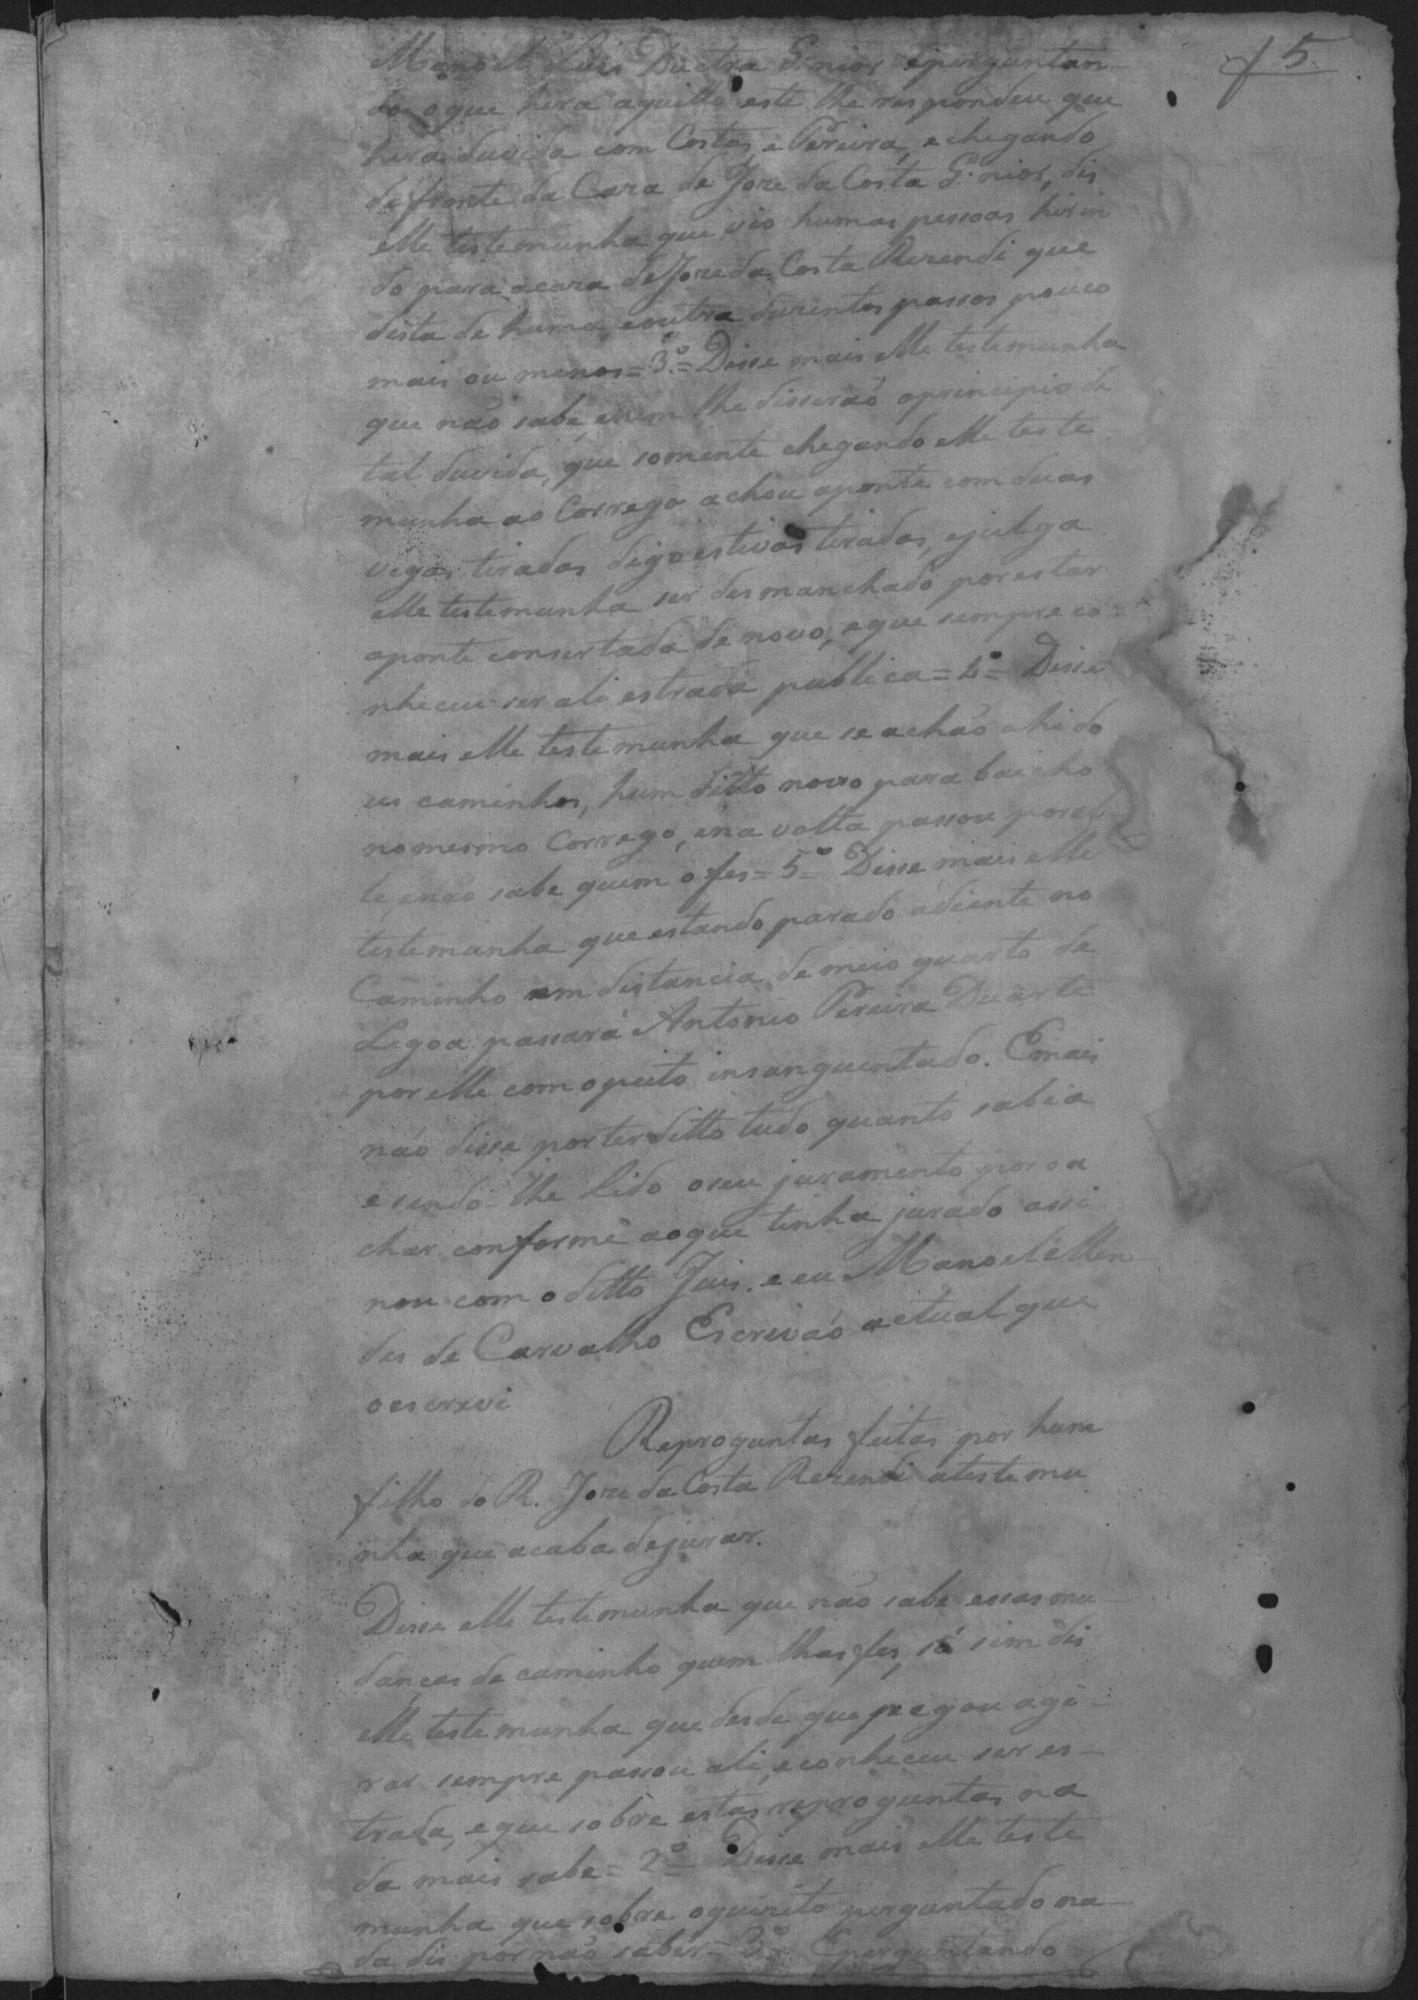 f 5
Manoel Luis Ductra Senior eperguntan-
do oque hera aquillo este lhe respondeu que
hera duvida com Costas e Pereira, e chegando
defronte da Caza de Joze da Costa Senior, dis
elle testemunha que vio humas pessoas hirin
do para acaza de Joze da Costa Rezendi que
dista de huma eoutra duzentos passos pouco
mais ou menos = 3.º = Disse mais elle testemunha
que não sabe, enem lhe disserão oprincipio de
tal duvida, que somente chegando elle teste
munha ao Corrego achou aponte com duas
vigas tiradas digo estivas tiradas, ejulga
elle testemunha ser desmanchado por estar
aponte consertada de novo, eque sempre co-
nheceu ser ali estrada publica = 4º = Disse
mais elle testemunha que se achão ahi do
us caminhos, hum ditto novo para baicho
nomesmo Corrego, ena volta passou porel
le, enão sabe quem o fes = 5º = Disse mais elle
testemunha que estando parado adiente no
Caminho em distancia de meio quarto de
Legoa passará Antonio Pereira Duarte
por elle com opeito insanguentado. Emais
não disse por ter ditto tudo quanto sabia
e sendo-lhe Lido oseu juramento por o a
char conforme aoque tinha jurado assi
nou com o ditto Juis. e eu Manoel Men-
des de Carvalho Escrivão actual que
oescrevi
Reproguntas feitas por hum
filho do R. Joze da Costa Rezendi atestemu
nha que acaba dejurar.
Disse elle testemunha que não sabe essas mu-
danças de caminho quem lhas fes, só sim dis
elle testemunha que desde que pegou agi-
rar sempre passou ali, econheceu ser es-
trada, eque sobre estas reproguntas na
da mais sabe = 2º = Disse mais elle teste
munha que sobre oquizito perguntado na-
da dis pornão saber = 3º = Eperguntando